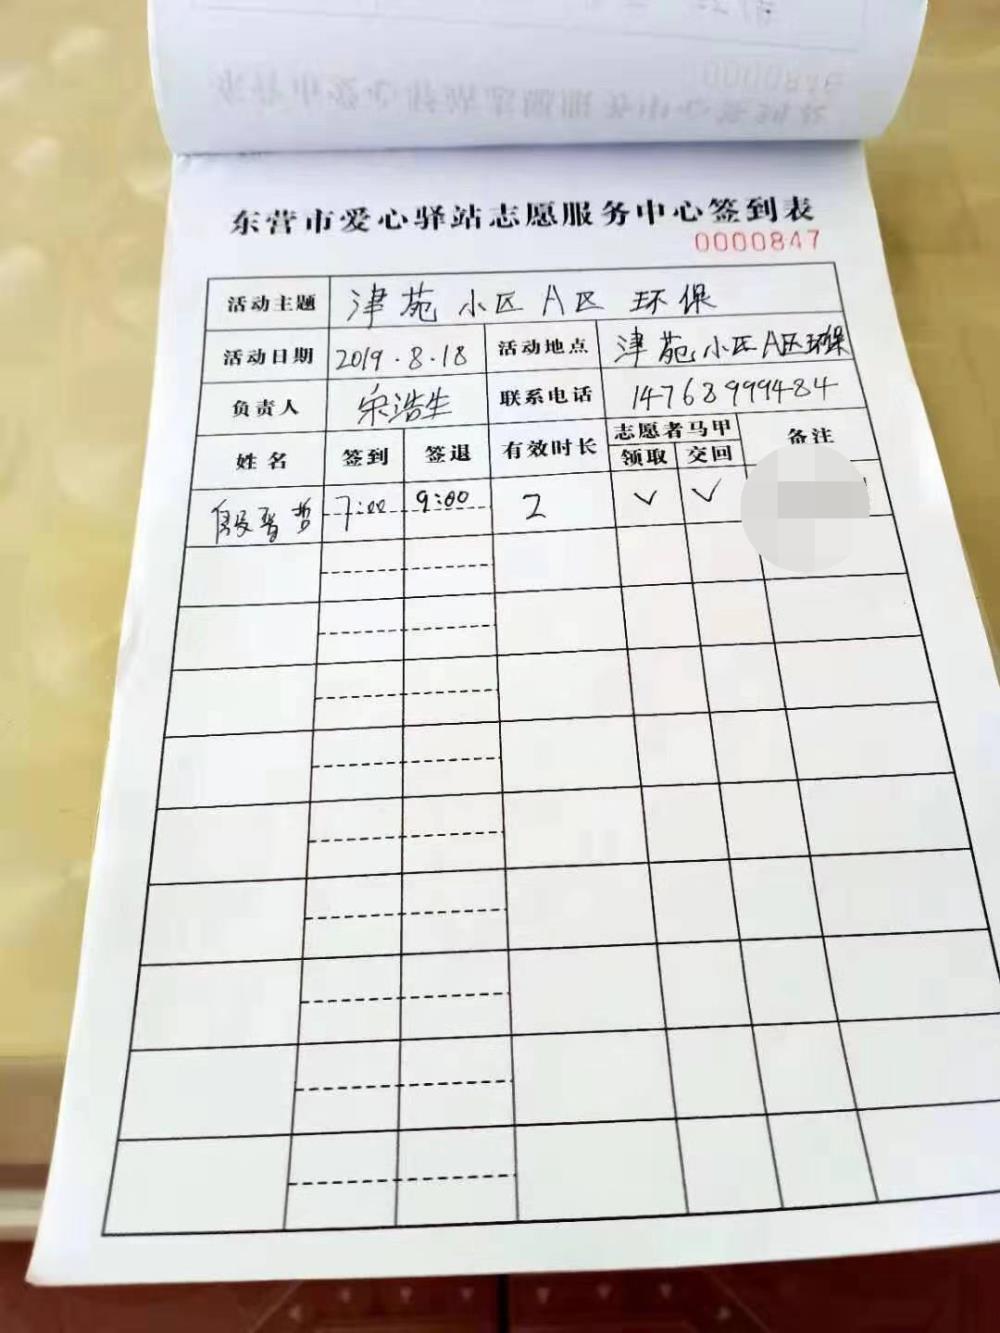 东营市爱心驿站志愿服务中心签到表
0000847
活动主题 津苑小区A区 环保
活动日期 2019.8.18 活动地点 津苑小区A区环保
负责人 宋浩生 联系电话 14768999484
姓名 签到 签退 有效时长 志愿者马甲 备注
领取 交回
殷晋哲 7:00 9:00 2 ✓ ✓